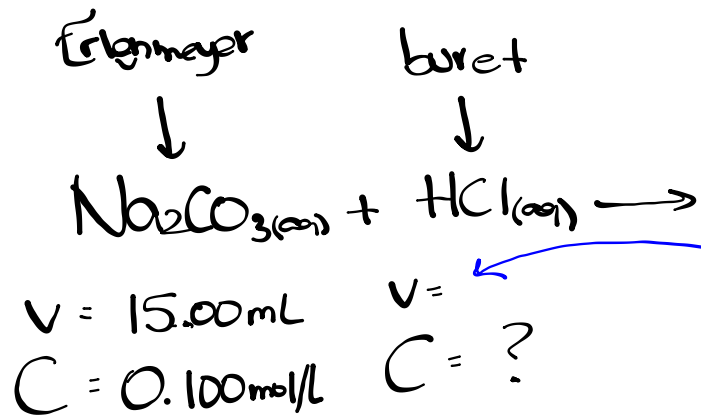 Erlenmeyer buret
Na2CO3(aq) + HCl(aq) →
V = 15.00mL V =
C = 0.100mol/L C = ?